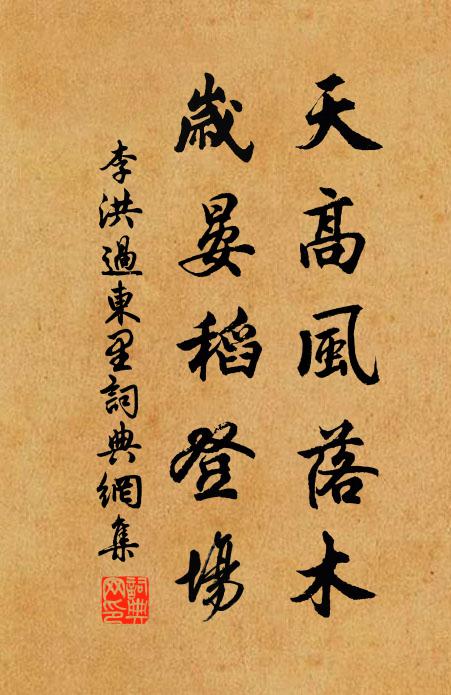 天高風落木
歲晏稻登場
李洪過東里詞典網集
詞典
网印